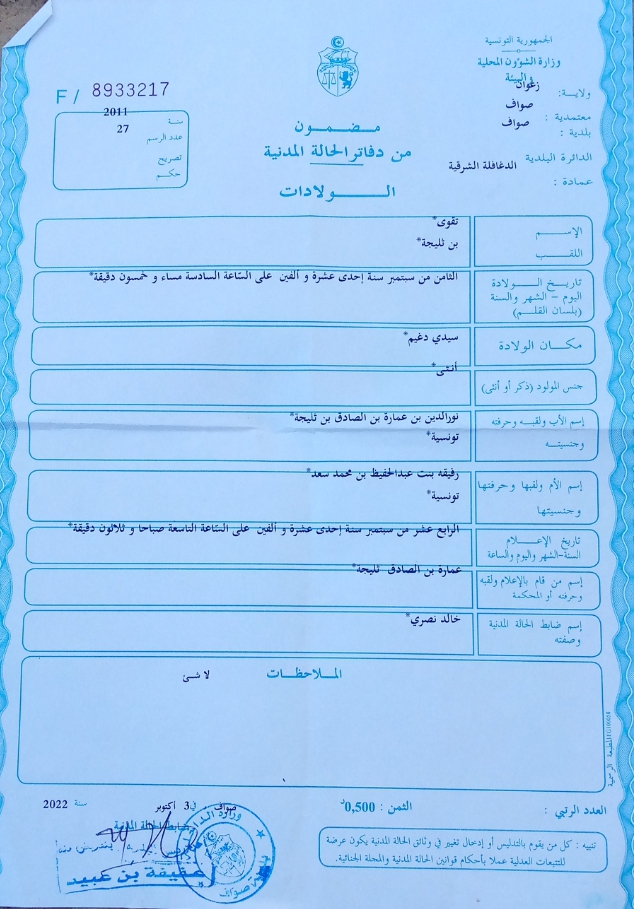 الجمهورية التونسية
وزارة الشؤون المحلية
والبيئة
ولاية: زغوان
معتمدية : صواف
بلدية : صواف
الدائرة البلدية الدغافلة الشرقية
عمادة :
F/ 8933217
سنة 2011
عدد الرسم 27
تصريح
حكم
مضمون
من دفاتر الحالة المدنية
الولادات
الإسم تقوى*
اللقب بن ثليجة*
تاريخ الولادة الثامن من سبتمبر سنة إحدى عشرة و ألفين على السّاعة السادسة مساء و خمسون دقيقة*
اليوم - الشهر والسنة
(بلسان القلم)
مكان الولادة سيدي دغيم*
جنس المولود (ذكر أو أنثى) أنثى*
إسم الأب ولقبه وحرفته نورالدين بن عمارة بن الصادق بن ثليجة*
وجنسيته تونسية*
إسم الأم ولقبها وحرفتها رفيقه بنت عبدالحفيظ بن محمد سعد*
وجنسيتها تونسية*
تاريخ الإعلام الرابع عشر من سبتمبر سنة إحدى عشرة و ألفين على السّاعة التاسعة صباحا و ثلاثون دقيقة*
السنة-الشهر واليوم والساعة
إسم من قام بالإعلام ولقبه عمارة بن الصادق ثليجة*
وحرفته أو المحكمة
إسم ضابط الحالة المدنية خالد نصري*
وصفته
الملاحظات
لا شئ
المطبعة الرسمية
العدد الرتبي :
الثمن : 0,500د
صواف في 3 أكتوبر سنة 2022
ضابط الحالة المدنية
عفيفة بن عبيد
تنبيه : كل من يقوم بالتدليس أو إدخال تغيير في وثائق الحالة المدنية يكون عرضة
للتتبعات العدلية عملا بأحكام قوانين الحالة المدنية والمجلة الجنائية.